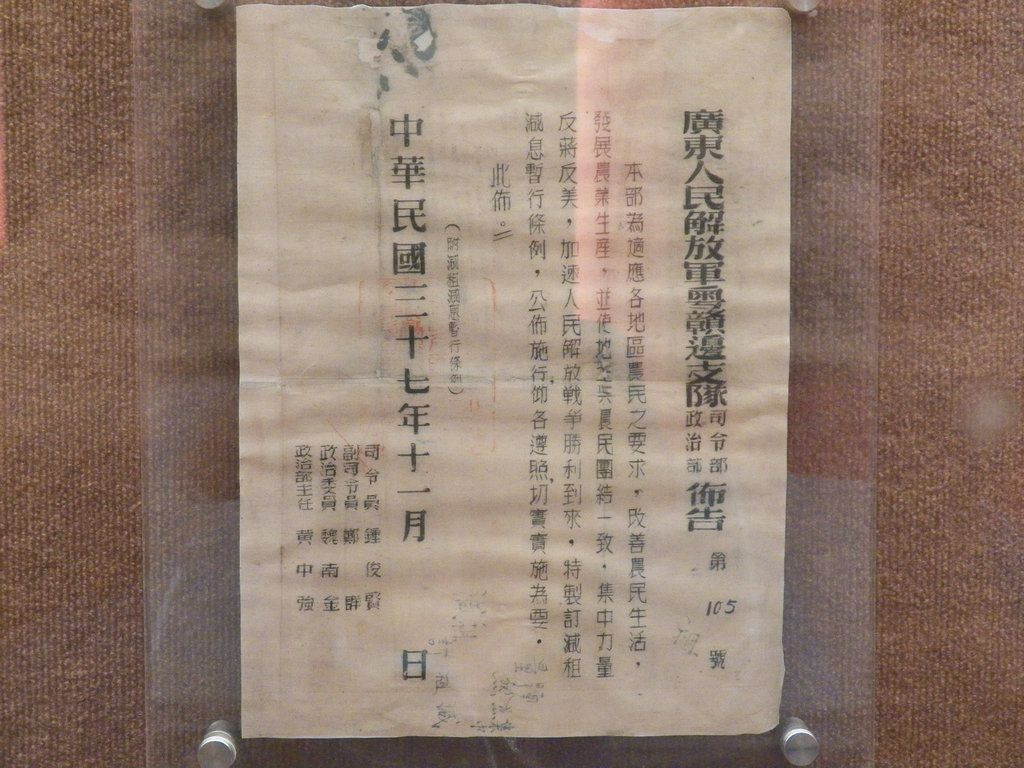 廣東人民解放軍粵贛邊支隊司令部政治部佈告 第105號
本部為適應各地區農民之要求，改善農民生活，
發展農業生產，並使地主與農民團結一致，集中力量
反蔣反美，加速人民解放戰爭勝利到來，特製訂減租
減息暫行條例，公佈施行，仰各遵照，切實實施為要．
此佈。
（附減租減息暫行條例）
中華民國三十七年十一月 日
司令員 鍾俊賢
副司令員 鄭群
政治委員 魏南金
政治部主任 黃中強